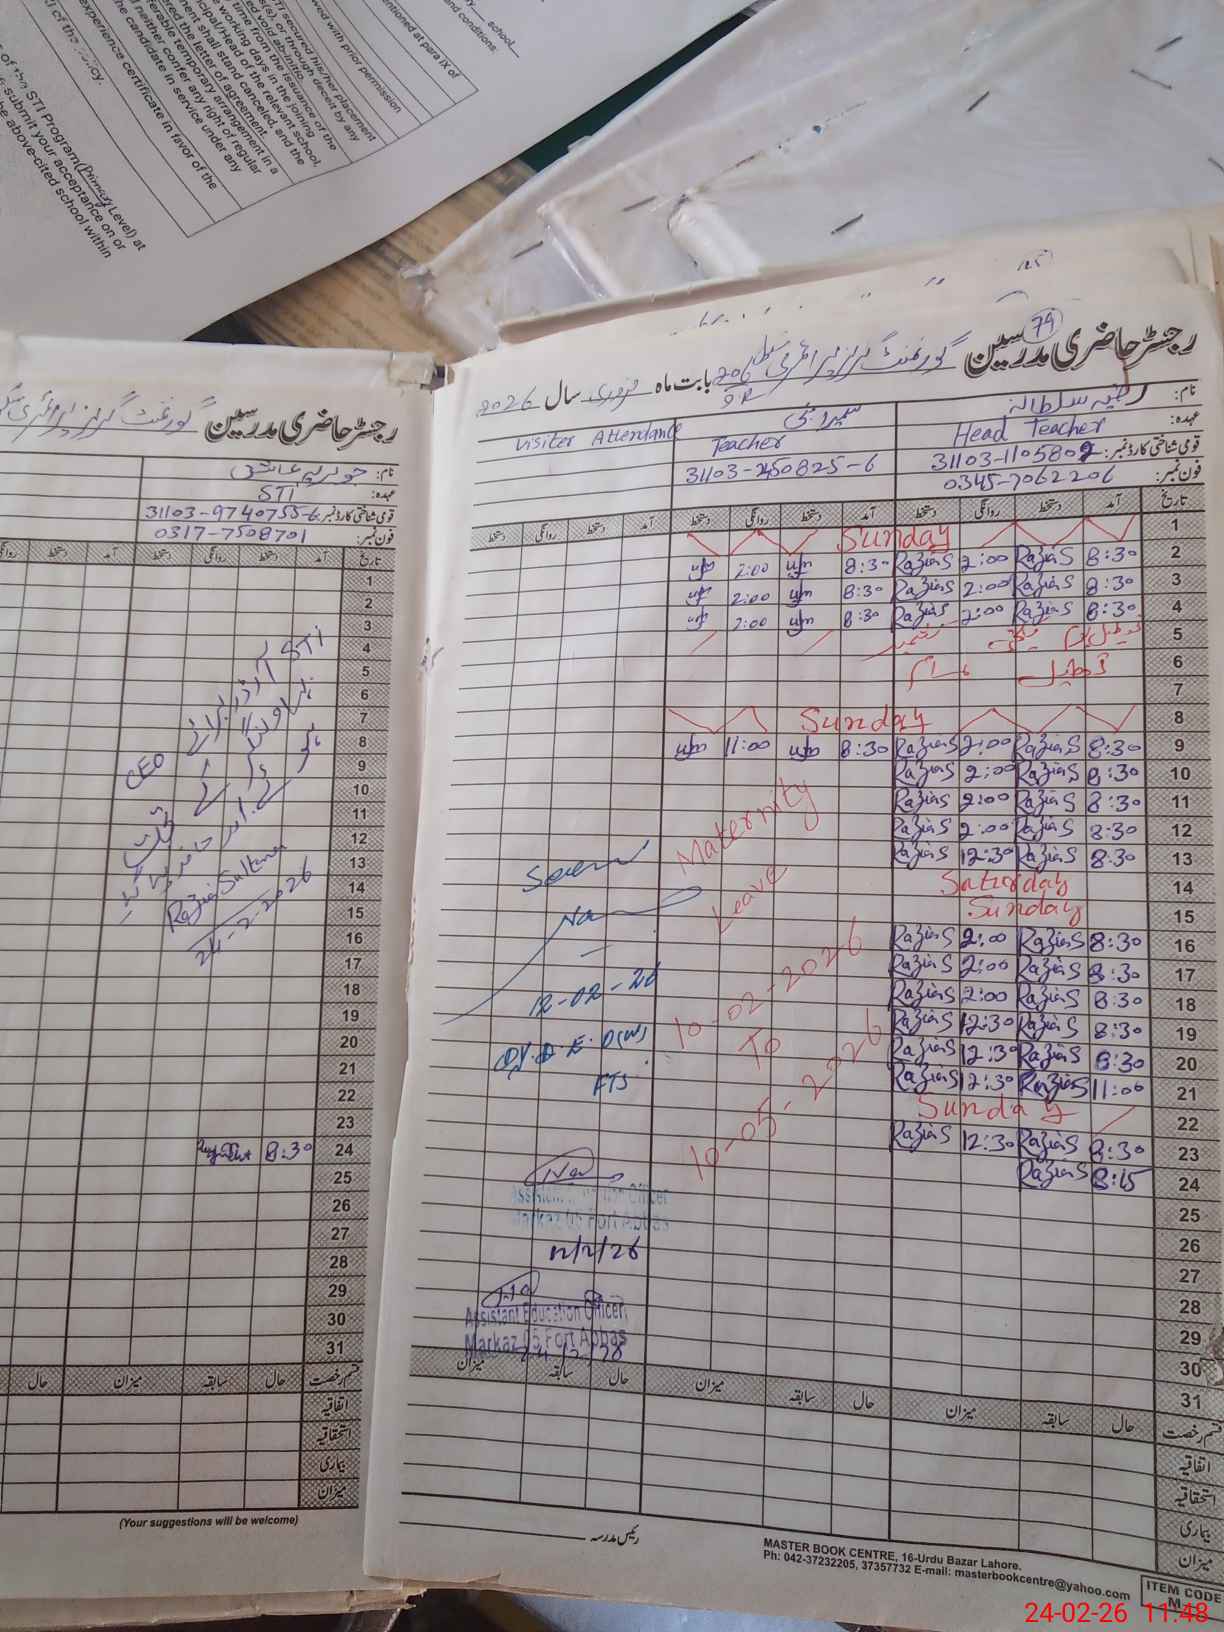 school
and conditions:
mentioned at para IX of
owed with prior permission
STI secured his/her placement
(s), or through deceit by any
ed void abinitio.
time from the issuance of the
working days in the joining
cipal/Head of the relevant school,
ment shall stand canceled, and the
red the letter of agreement.
ferable temporary arrangement in a
l neither confer any right of regular
the candidate in service under any
experience certificate in favor of the
of the STI Program (Primary Level) at
submit your acceptance on or
e above-cited school within
رجسٹر حاضری مدرسین
نام:
عہدہ: STI
قومی شناختی کارڈ نمبر: 31103-9740755-6
فون نمبر: 0317-7508701
تاریخ آمد دستخط روانگی دستخط آمد دستخط روانگی
1
2
3
4
5
6
7
8
9
10
11
12
13
14
15
16
17
18
19
20
21
22
23
24 8:30
25
26
27
28
29
30
31
STI
CEO
Razia Sultana
24-2-2026
قسم رخصت حال سابقہ میزان حال
اتفاقیہ
استحقاقیہ
بیماری
میزان
(Your suggestions will be welcome)
79
رجسٹر حاضری مدرسین گورنمنٹ گرلز پرائمری سکول 206 بابت ماہ فروری سال 2026
9R
نام: رضیہ سلطانہ
عہدہ: Head Teacher Teacher Visiter Attendance
قومی شناختی کارڈ نمبر: 31103-1105802 31103-2450825-6
فون نمبر: 0345-7062206
تاریخ آمد دستخط روانگی دستخط آمد دستخط روانگی دستخط آمد دستخط روانگی دستخط
1 Sunday
2 8:30 RaziaS 2:00 RaziaS 8:30 2:00
3 8:30 RaziaS 2:00 RaziaS 8:30 2:00
4 8:30 RaziaS 2:00 RaziaS 8:30 2:00
5 تعطیل کشمیر
6 تعطیل
7
8 Sunday
9 8:30 RaziaS 2:00 RaziaS 8:30 11:00
10 8:30 RaziaS 2:00 RaziaS
11 8:30 RaziaS 2:00 RaziaS
12 8:30 RaziaS 2:00 RaziaS
13 8:30 RaziaS 12:30 RaziaS
14 Saturday
15 Sunday
16 8:30 RaziaS 2:00 RaziaS
17 8:30 RaziaS 2:00 RaziaS
18 8:30 RaziaS 2:00 RaziaS
19 8:30 RaziaS 12:30 RaziaS
20 8:30 RaziaS 12:30 RaziaS
21 11:00 RaziaS 12:30 RaziaS
22 Sunday
23 8:30 RaziaS 12:30 RaziaS
24 8:15 RaziaS
25
26
27
28
29
30
31
Maternity
Leave
10-02-2026
To
10-05-2026
Seen
12-02-26
Dy.D.E.O(W)
FTS
Assistant Education Officer
Markaz 05 Fort Abbas
12/2/26
Assistant Education Officer
Markaz 05 Fort Abbas
قسم رخصت حال سابقہ میزان حال سابقہ میزان حال سابقہ میزان
اتفاقیہ
استحقاقیہ
بیماری
میزان
رئیس مدرسہ
MASTER BOOK CENTRE, 16-Urdu Bazar Lahore.
Ph: 042-37232205, 37357732 E-mail: masterbookcentre@yahoo.com
ITEM CODE
24-02-26 11:48